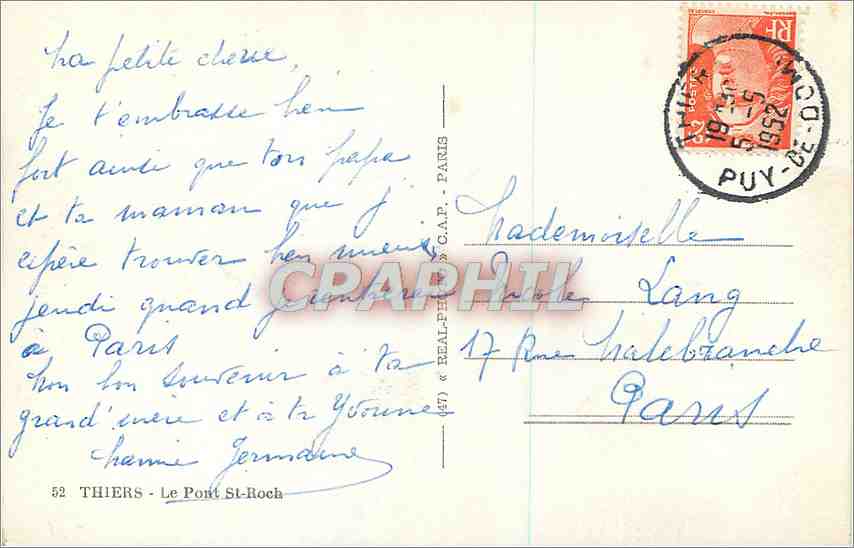 Ma petite chérie,
Je t'embrasse bien
fort ainsi que ton papa
et ta maman que j'
espère trouver bien mieux
jeudi quand je rentrerai
à Paris
Mon bon souvenir à ta
grand'mère et à ta Yvonne
Mamie Germaine
52 THIERS - Le Pont St-Roch
(47) « REAL-PHOTO » C.A.P. - PARIS
CPARPHIL
RF
POSTES
THIERS
19
5-5
1952
PUY-DE-DOME
Mademoiselle
Nicole Lang
17 Rue Malebranche
Paris